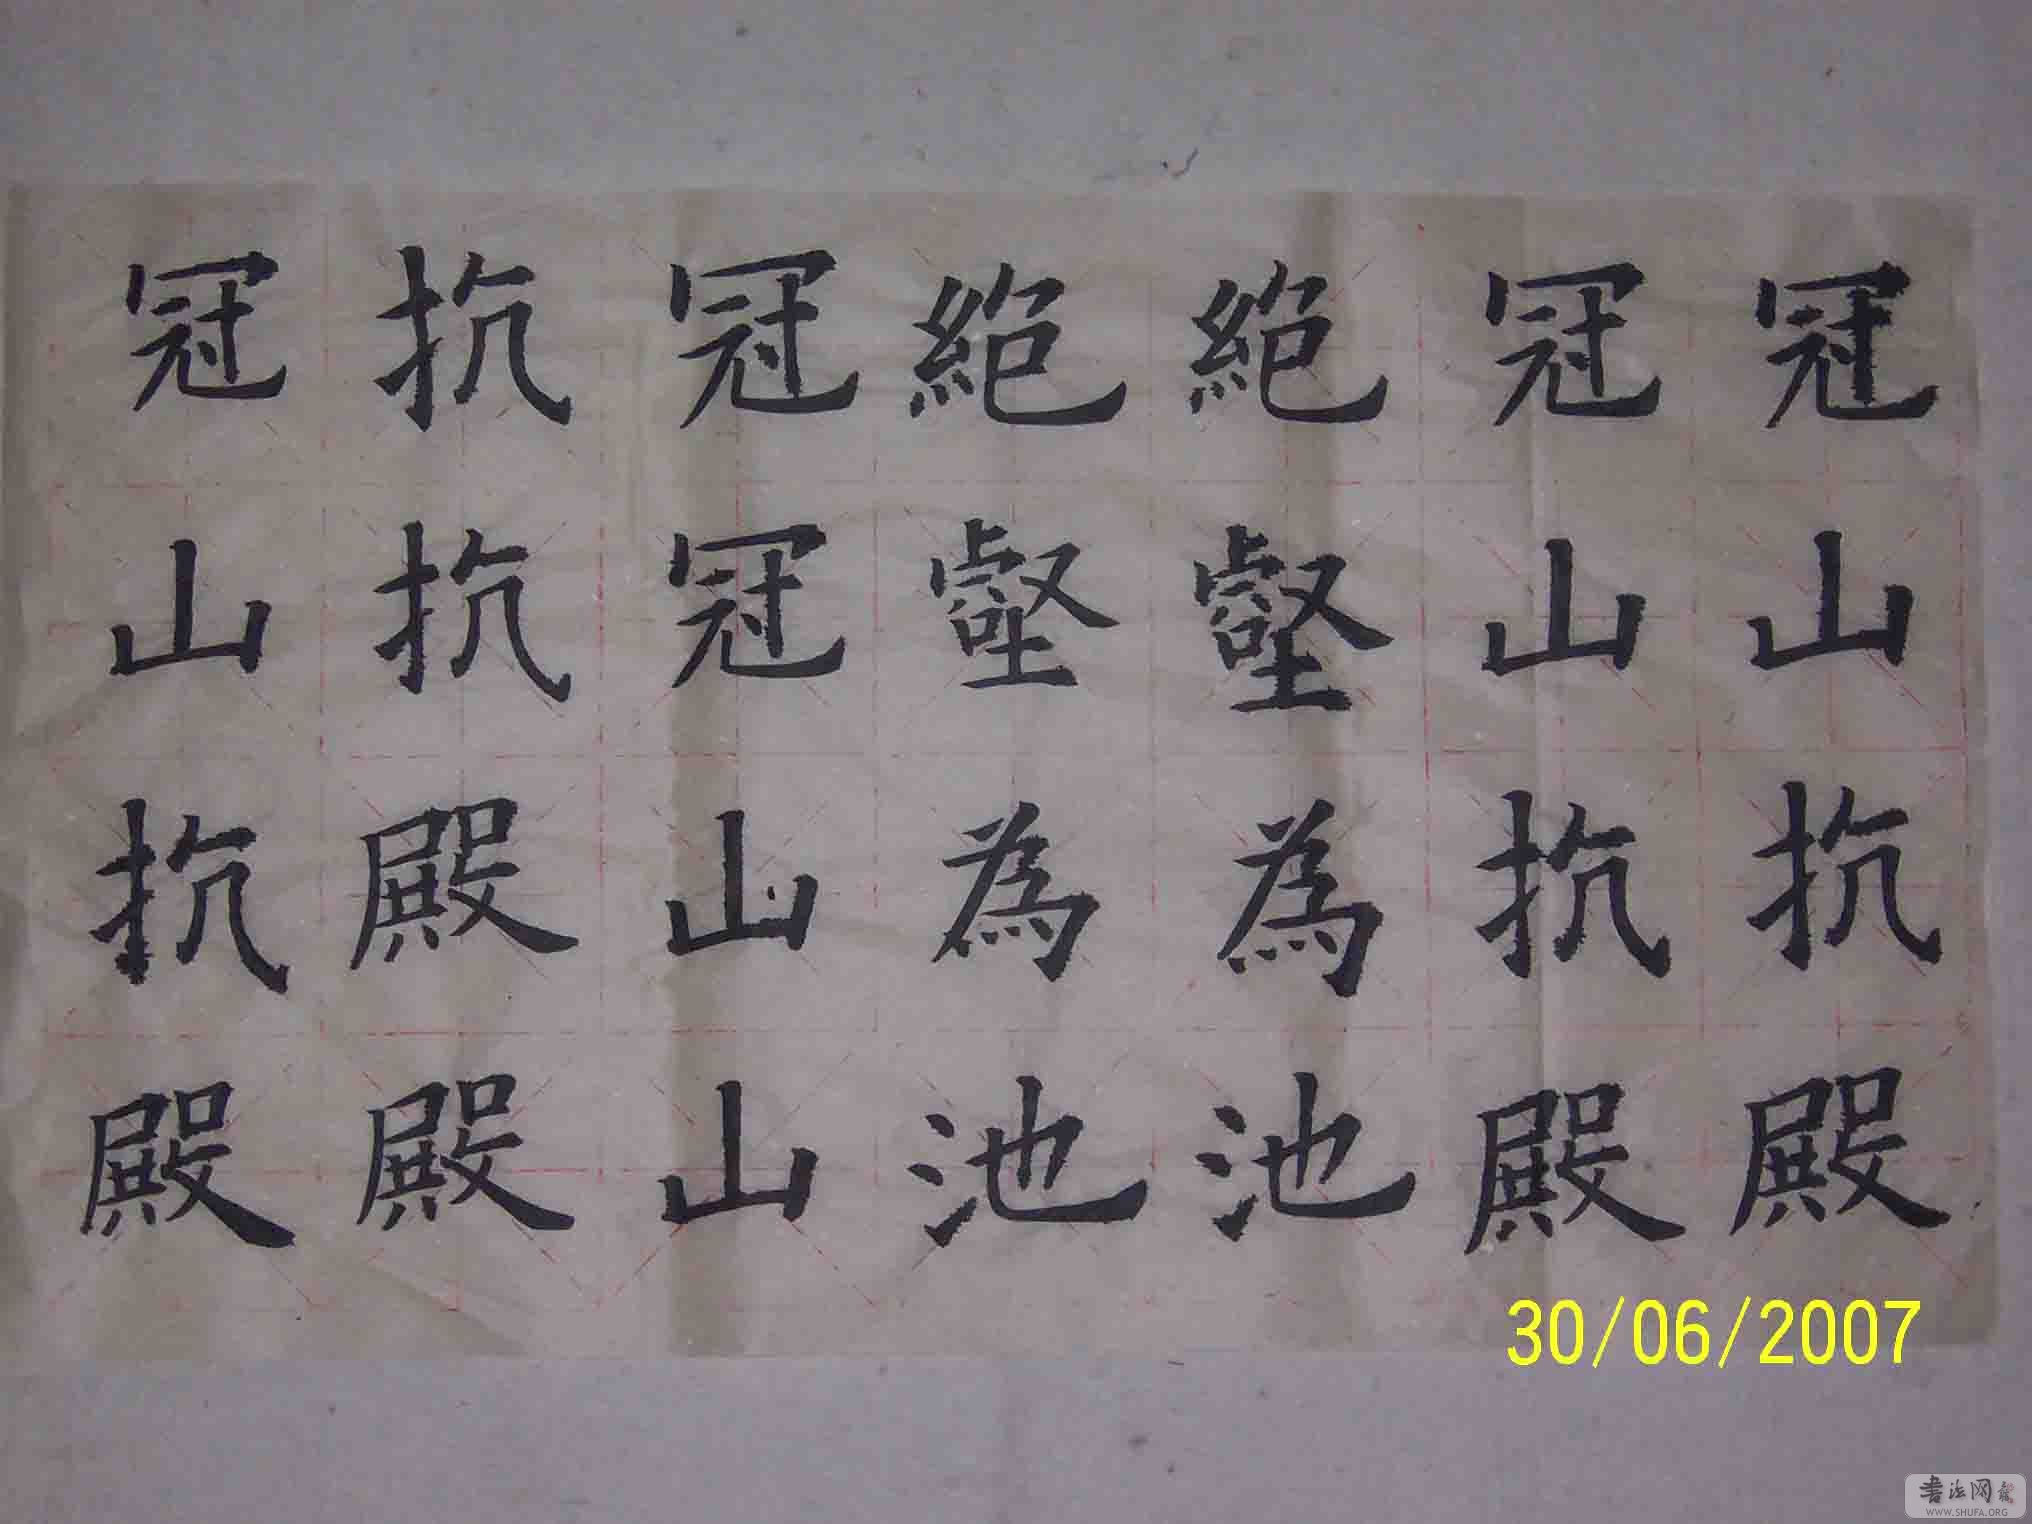 冠山抗殿
冠山抗殿
絶壑為池
絶壑為池
冠冠山山
抗抗殿殿
冠山抗殿
30/06/2007
書法网
WWW.SHUFA.ORG